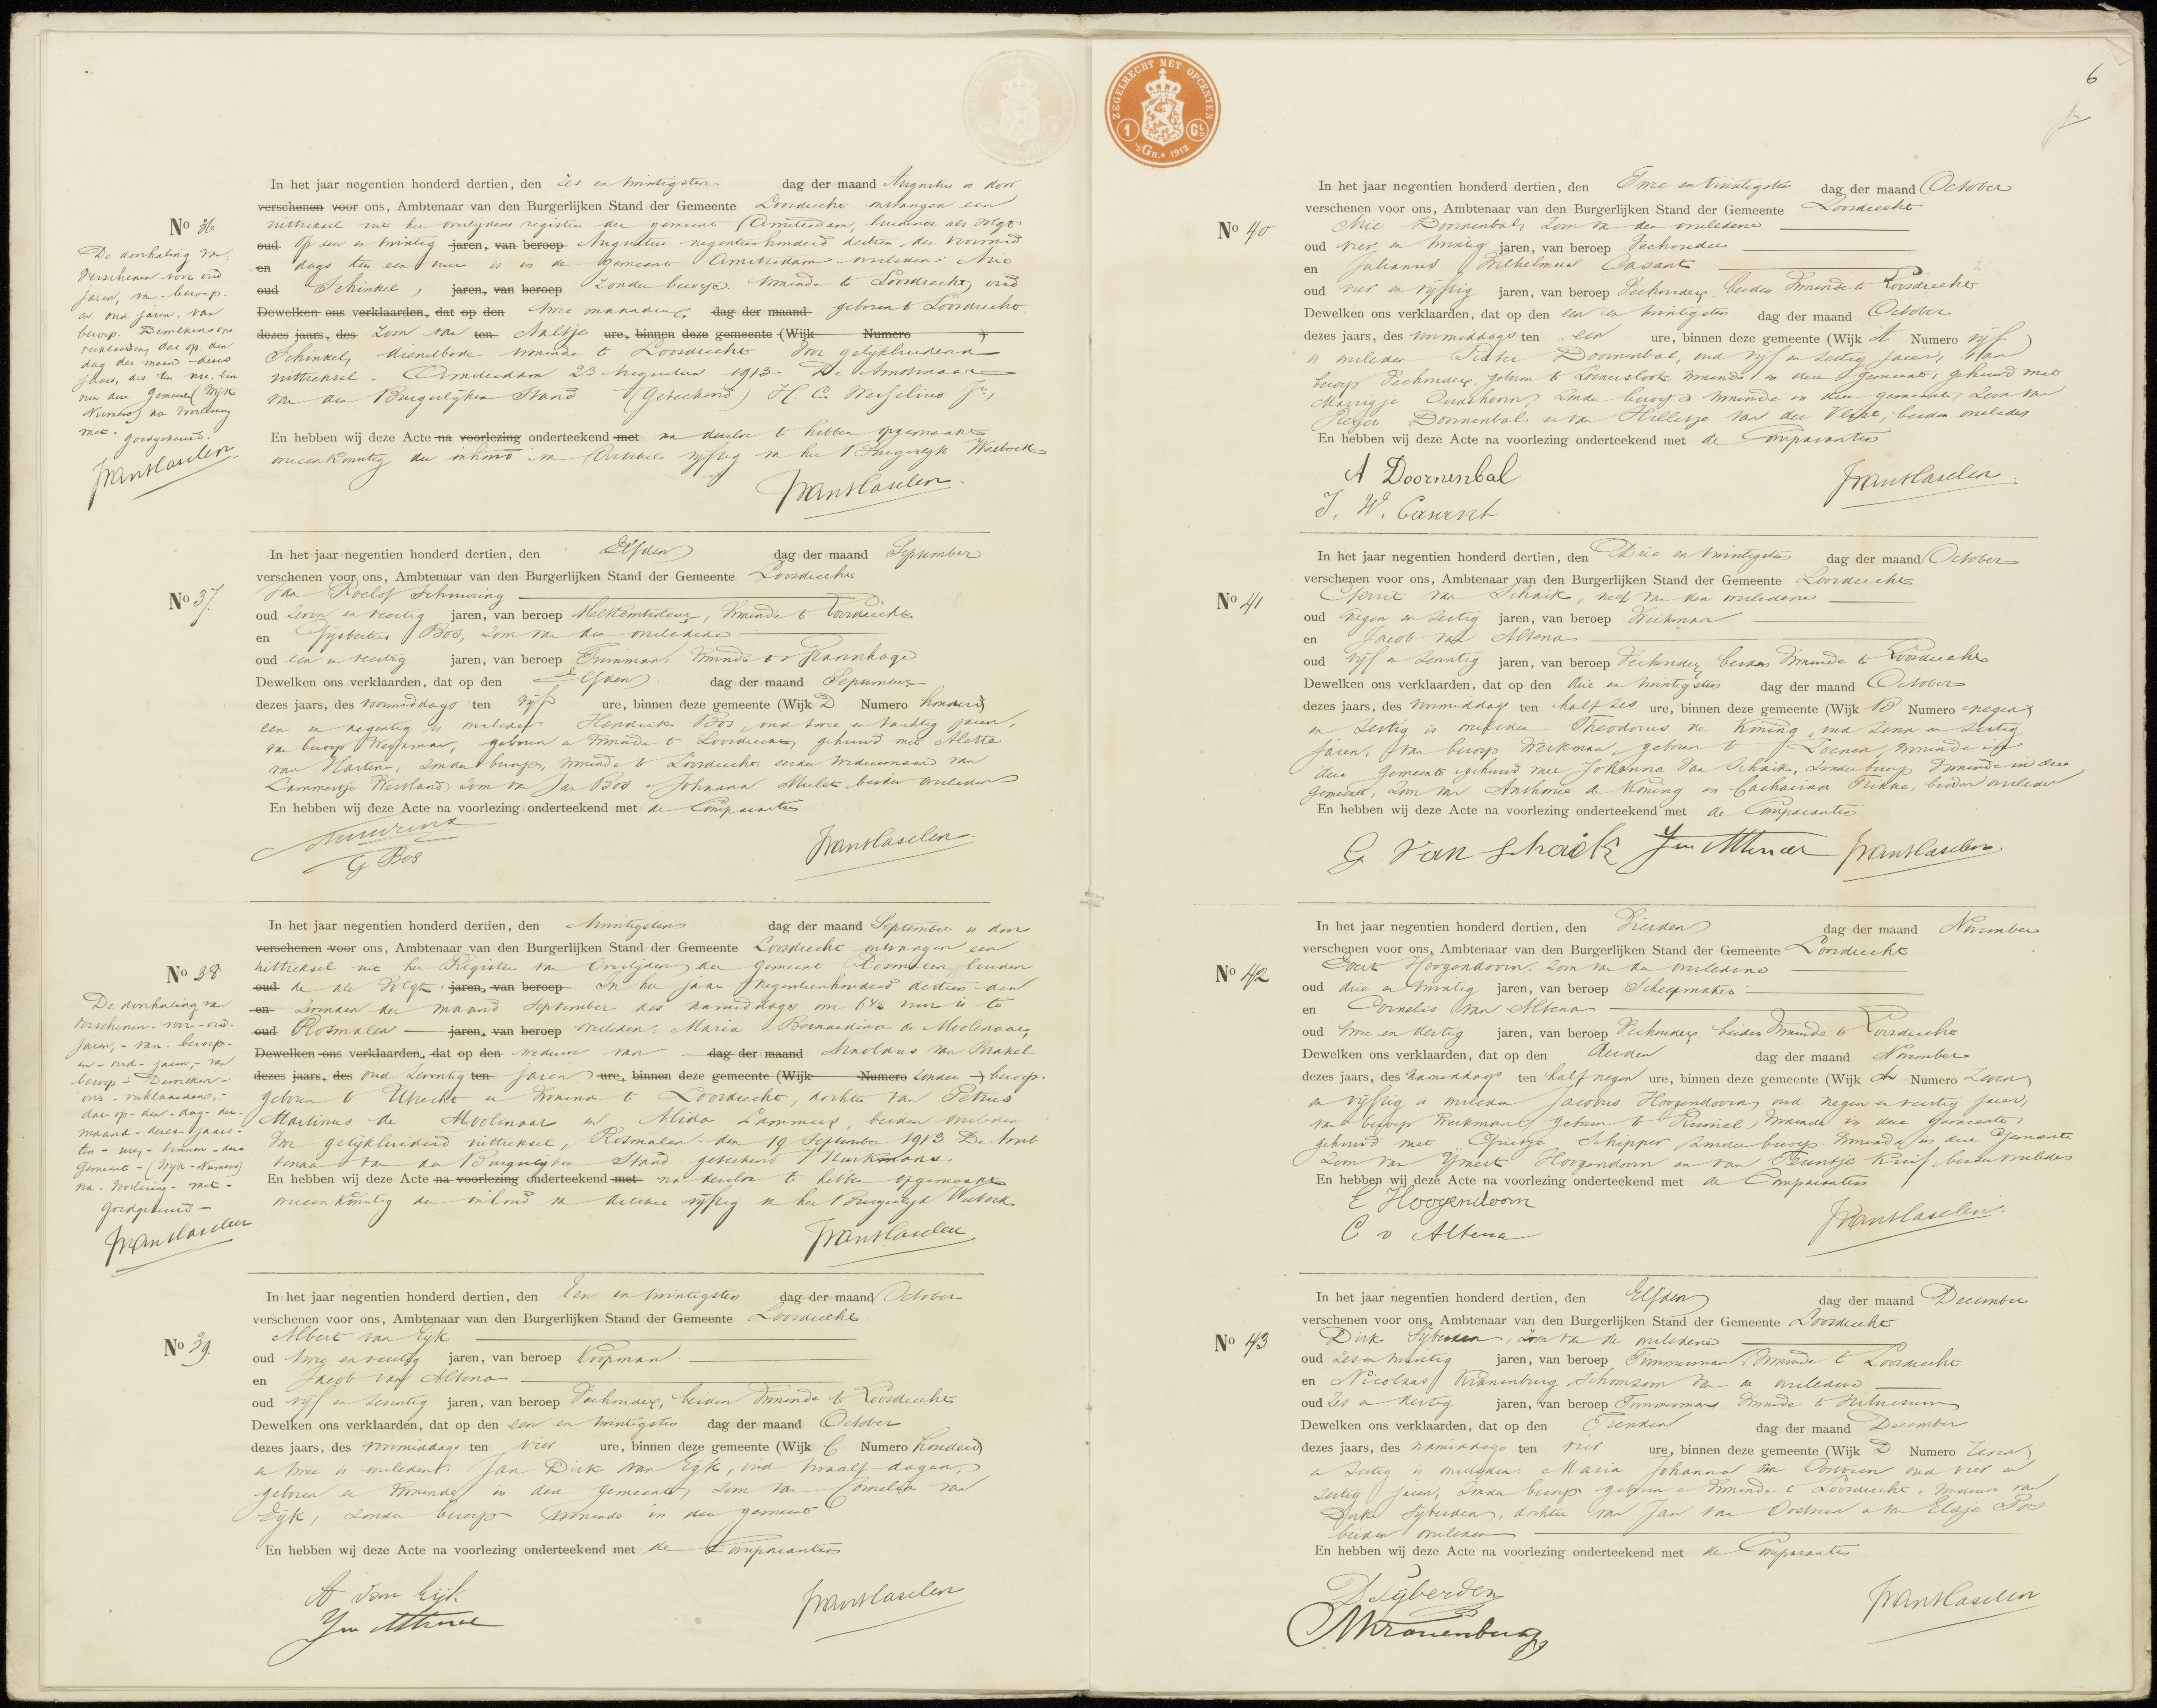 In het jaar negentien honderd dertien, den zes en twintigsten dag der maand Augustus is door
verschenen voor ons, Ambtenaar van den Burgerlijken Stand der Gemeente Loosdrecht ontvangen een
No 36
uittreksel uit het overlijdens register der gemeente Amsterdam, luidende als volgt
oud Op een en twintig jaren, van beroep Augustus negentienhonderd dertien des voormid
en dags ten een ure is in de gemeente Amsterdam overleden:
oud Schinkel, jaren, van beroep zonder beroep wonende te Loosdrecht, oud
Dewelken ons verklaarden, dat op den twee maanden dag der maand geboren te Loosdrecht
dezes jaars, des zoon van ten Aaltje ure, binnen deze gemeente (Wijk Numero )
Schinkel, dienstbode wonende te Loosdrecht Voor gelijkluidend
uittreksel. Amsterdam 23 Augustus 1913 De Ambtenaar
van den Burgerlijken Stand (Geteekend) H C Wesselius Jr.,
En hebben wij deze Acte na voorlezing onderteekend met na dezelve te hebben opgemaakt
overeenkomstig den inhoud van Artikel vijftig van het Burgerlijk Wetboek
De doorhaling van
verschenen voor oud
jaren, van beroep
en oud jaren, van
beroep Dewelken ons
verklaarden, dat op den
dag der maand dezes
jaars, des ten ure, bin
nen deze gemeente (Wijk
Numero) na voorlezing
met goedgekeurd.
In het jaar negentien honderd dertien, den Elfden dag der maand September
verschenen voor ons, Ambtenaar van den Burgerlijken Stand der Gemeente Loosdrecht
No 37.
Jan Roelof Schuuring
oud zeven en veertig jaren, van beroep Melkcontroleur, wonende te Loosdrecht
en Gijsbertus Bos, zoon van den overledene
oud een en veertig jaren, van beroep Tuinman, wonende
Dewelken ons verklaarden, dat op den Elfden dag der maand September
dezes jaars, des voormiddags ten vijf ure, binnen deze gemeente (Wijk D Numero honderd
een en negentig is overleden Hendrik Bos, oud twee en tachtig jaren,
van beroep Werkman, geboren en wonende te Loosdrecht, gehuwd met Aletta
van Harten, zonder beroep, wonende te Loosdrecht eerder weduwnaar van
Lammertje Westland zoon van Jan Bos en Johanna Mulet beiden overleden
En hebben wij deze Acte na voorlezing onderteekend met de Comparanten
G Bos
In het jaar negentien honderd dertien, den twintigsten dag der maand September is door
verschenen voor ons, Ambtenaar van den Burgerlijken Stand der Gemeente Loosdrecht ontvangen een
No 38
uittreksel uit het Register van Overlijden der gemeente Rosmalen luiden
oud de als volgt: jaren, van beroep In het jaar negentienhonderd dertien den
en der maand September des namiddags om ure is te
oud Rosmalen jaren, van beroep overleden: Maria Bernardina de Moolenaar,
Dewelken ons verklaarden, dat op den weduwe van dag der maand Arnoldus van Brakel
dezes jaars, des oud zeventig ten jaren ure, binnen deze gemeente (Wijk Numero zonder ) beroep
geboren te Utrecht en wonende te Loosdrecht, dochter van Petrus
Martinus de Moolenaar en Alida Lammers, beiden overleden
Voor gelijkluidend uittreksel, Rosmalen den 19 September 1913 De Amb
tenaar van den Burgerlijken Stand geteekend
En hebben wij deze Acte na voorlezing onderteekend met na dezelve te hebben opgemaakt
overeenkomstig den inhoud van Artikel vijftig van het Burgerlijk Wetboek
De doorhaling van
verschenen - voor - oud -
jaren, - van - beroep -
en - oud - jaren, - van
beroep - Dewelken -
ons - verklaarden, -
dat - op - den - dag - der
maand - dezes - jaars -
ten - ure, - binnen - deze
gemeente - (Wijk - Numero)
na - voorlezing - met -
goedgekeurd -
In het jaar negentien honderd dertien, den Een en twintigsten dag der maand October
verschenen voor ons, Ambtenaar van den Burgerlijken Stand der Gemeente Loosdrecht
No 39.
Albert van Eijk
oud twee en veertig jaren, van beroep Koopman
en Jacob van Altena
oud vijf en zeventig jaren, van beroep Veehouder, beiden wonende te Loosdrecht
Dewelken ons verklaarden, dat op den een en twintigsten dag der maand October
dezes jaars, des voormiddags ten vier ure, binnen deze gemeente (Wijk C Numero honderd)
en twee is overleden: Jan Dirk van Eijk, oud twaalf dagen,
geboren en wonende in deze gemeente, zoon van Cornelia van
Eijk, zonder beroep wonende in deze gemeente
En hebben wij deze Acte na voorlezing onderteekend met de Comparanten
A van Eijk
ZEGELRECHT MET OPCENTEN
1 GL
'sGR. 1912
6
In het jaar negentien honderd dertien, den Twee en twintigsten dag der maand October
verschenen voor ons, Ambtenaar van den Burgerlijken Stand der Gemeente Loosdrecht
No 40
Doornenbal, zoon van den overledene
oud vier en twintig jaren, van beroep Veehouder
en Julianus Wilhelmus Casant
oud vier en vijftig jaren, van beroep Veehouder, beiden wonende te Loosdrecht
Dewelken ons verklaarden, dat op den een en twintigsten dag der maand October
dezes jaars, des voormiddags ten een ure, binnen deze gemeente (Wijk A Numero vijf )
is overleden Pieter Doornenbal, oud vijf en zestig jaren, van
beroep Veehouder, geboren te Loenersloot, wonende in deze gemeente, gehuwd met
Marrigje Oudshoorn, zonder beroep wonende in deze gemeente, zoon van
Reijer Doornenbal en van Hilletje van der Vliet, beiden overleden
En hebben wij deze Acte na voorlezing onderteekend met de Comparanten
A Doornenbal
J. W. Casant
In het jaar negentien honderd dertien, den Drie en twintigsten dag der maand October
verschenen voor ons, Ambtenaar van den Burgerlijken Stand der Gemeente Loosdrecht
No 41
Gerrit van Schaik, neef van den overledene
oud negen en zestig jaren, van beroep Werkman
en Jacob van Altena
oud vijf en zeventig jaren, van beroep Veehouder, beiden wonende te Loosdrecht
Dewelken ons verklaarden, dat op den drie en twintigsten dag der maand October
dezes jaars, des voormiddags ten half zes ure, binnen deze gemeente (Wijk B Numero negen)
en zestig is overleden Theodorus de Koning, oud zeven en zestig
jaren, van beroep Werkman, geboren te Loenen, wonende in
deze gemeente gehuwd met Johanna van Schaik, zonder beroep wonende in deze
gemeente, zoon van Anthonie de Koning en Catharina Fukke, beiden overleden
En hebben wij deze Acte na voorlezing onderteekend met de Comparanten
G van Schaik
In het jaar negentien honderd dertien, den Vierden dag der maand November
verschenen voor ons, Ambtenaar van den Burgerlijken Stand der Gemeente Loosdrecht
No 42
Evert Hoogendoorn, zoon van den overledene
oud drie en twintig jaren, van beroep Scheepmaker
en Cornelis van Altena
oud twee en dertig jaren, van beroep Veehouder, beiden wonende te Loosdrecht
Dewelken ons verklaarden, dat op den derden dag der maand November
dezes jaars, des namiddags ten half negen ure, binnen deze gemeente (Wijk A Numero zeven)
en vijftig is overleden Jacobus Hoogendoorn, oud negen en veertig jaren,
van beroep Werkman, geboren te wonende in deze gemeente,
gehuwd met Grietje Schipper zonder beroep wonende in deze Gemeente
zoon van IJmert Hoogendoorn en van Teuntje Kuif beiden overleden
En hebben wij deze Acte na voorlezing onderteekend met de Comparanten
E Hoogendoorn
C v Altena
In het jaar negentien honderd dertien, den Elfden dag der maand December
verschenen voor ons, Ambtenaar van den Burgerlijken Stand der Gemeente Loosdrecht
No 43
Dirk Sijberden, zoon van de overledene
oud zes en twintig jaren, van beroep Timmerman, wonende te Loosdrecht
en Nicolaas Kranenburg, schoonzoon van de overledene
oud zes en dertig jaren, van beroep Timmerman wonende te Hilversum
Dewelken ons verklaarden, dat op den Tienden dag der maand December
dezes jaars, des namiddags ten vier ure, binnen deze gemeente (Wijk D Numero zeven)
en zestig is overleden: Maria Johanna van Oostveen oud vier en
zestig jaren, zonder beroep geboren en wonende te Loosdrecht, weduwe van
Dirk Sijberden, dochter van Jan van Oostveen en van Elsje Pos
beiden overleden
En hebben wij deze Acte na voorlezing onderteekend met de Comparanten
D Sijberden
Kranenburg